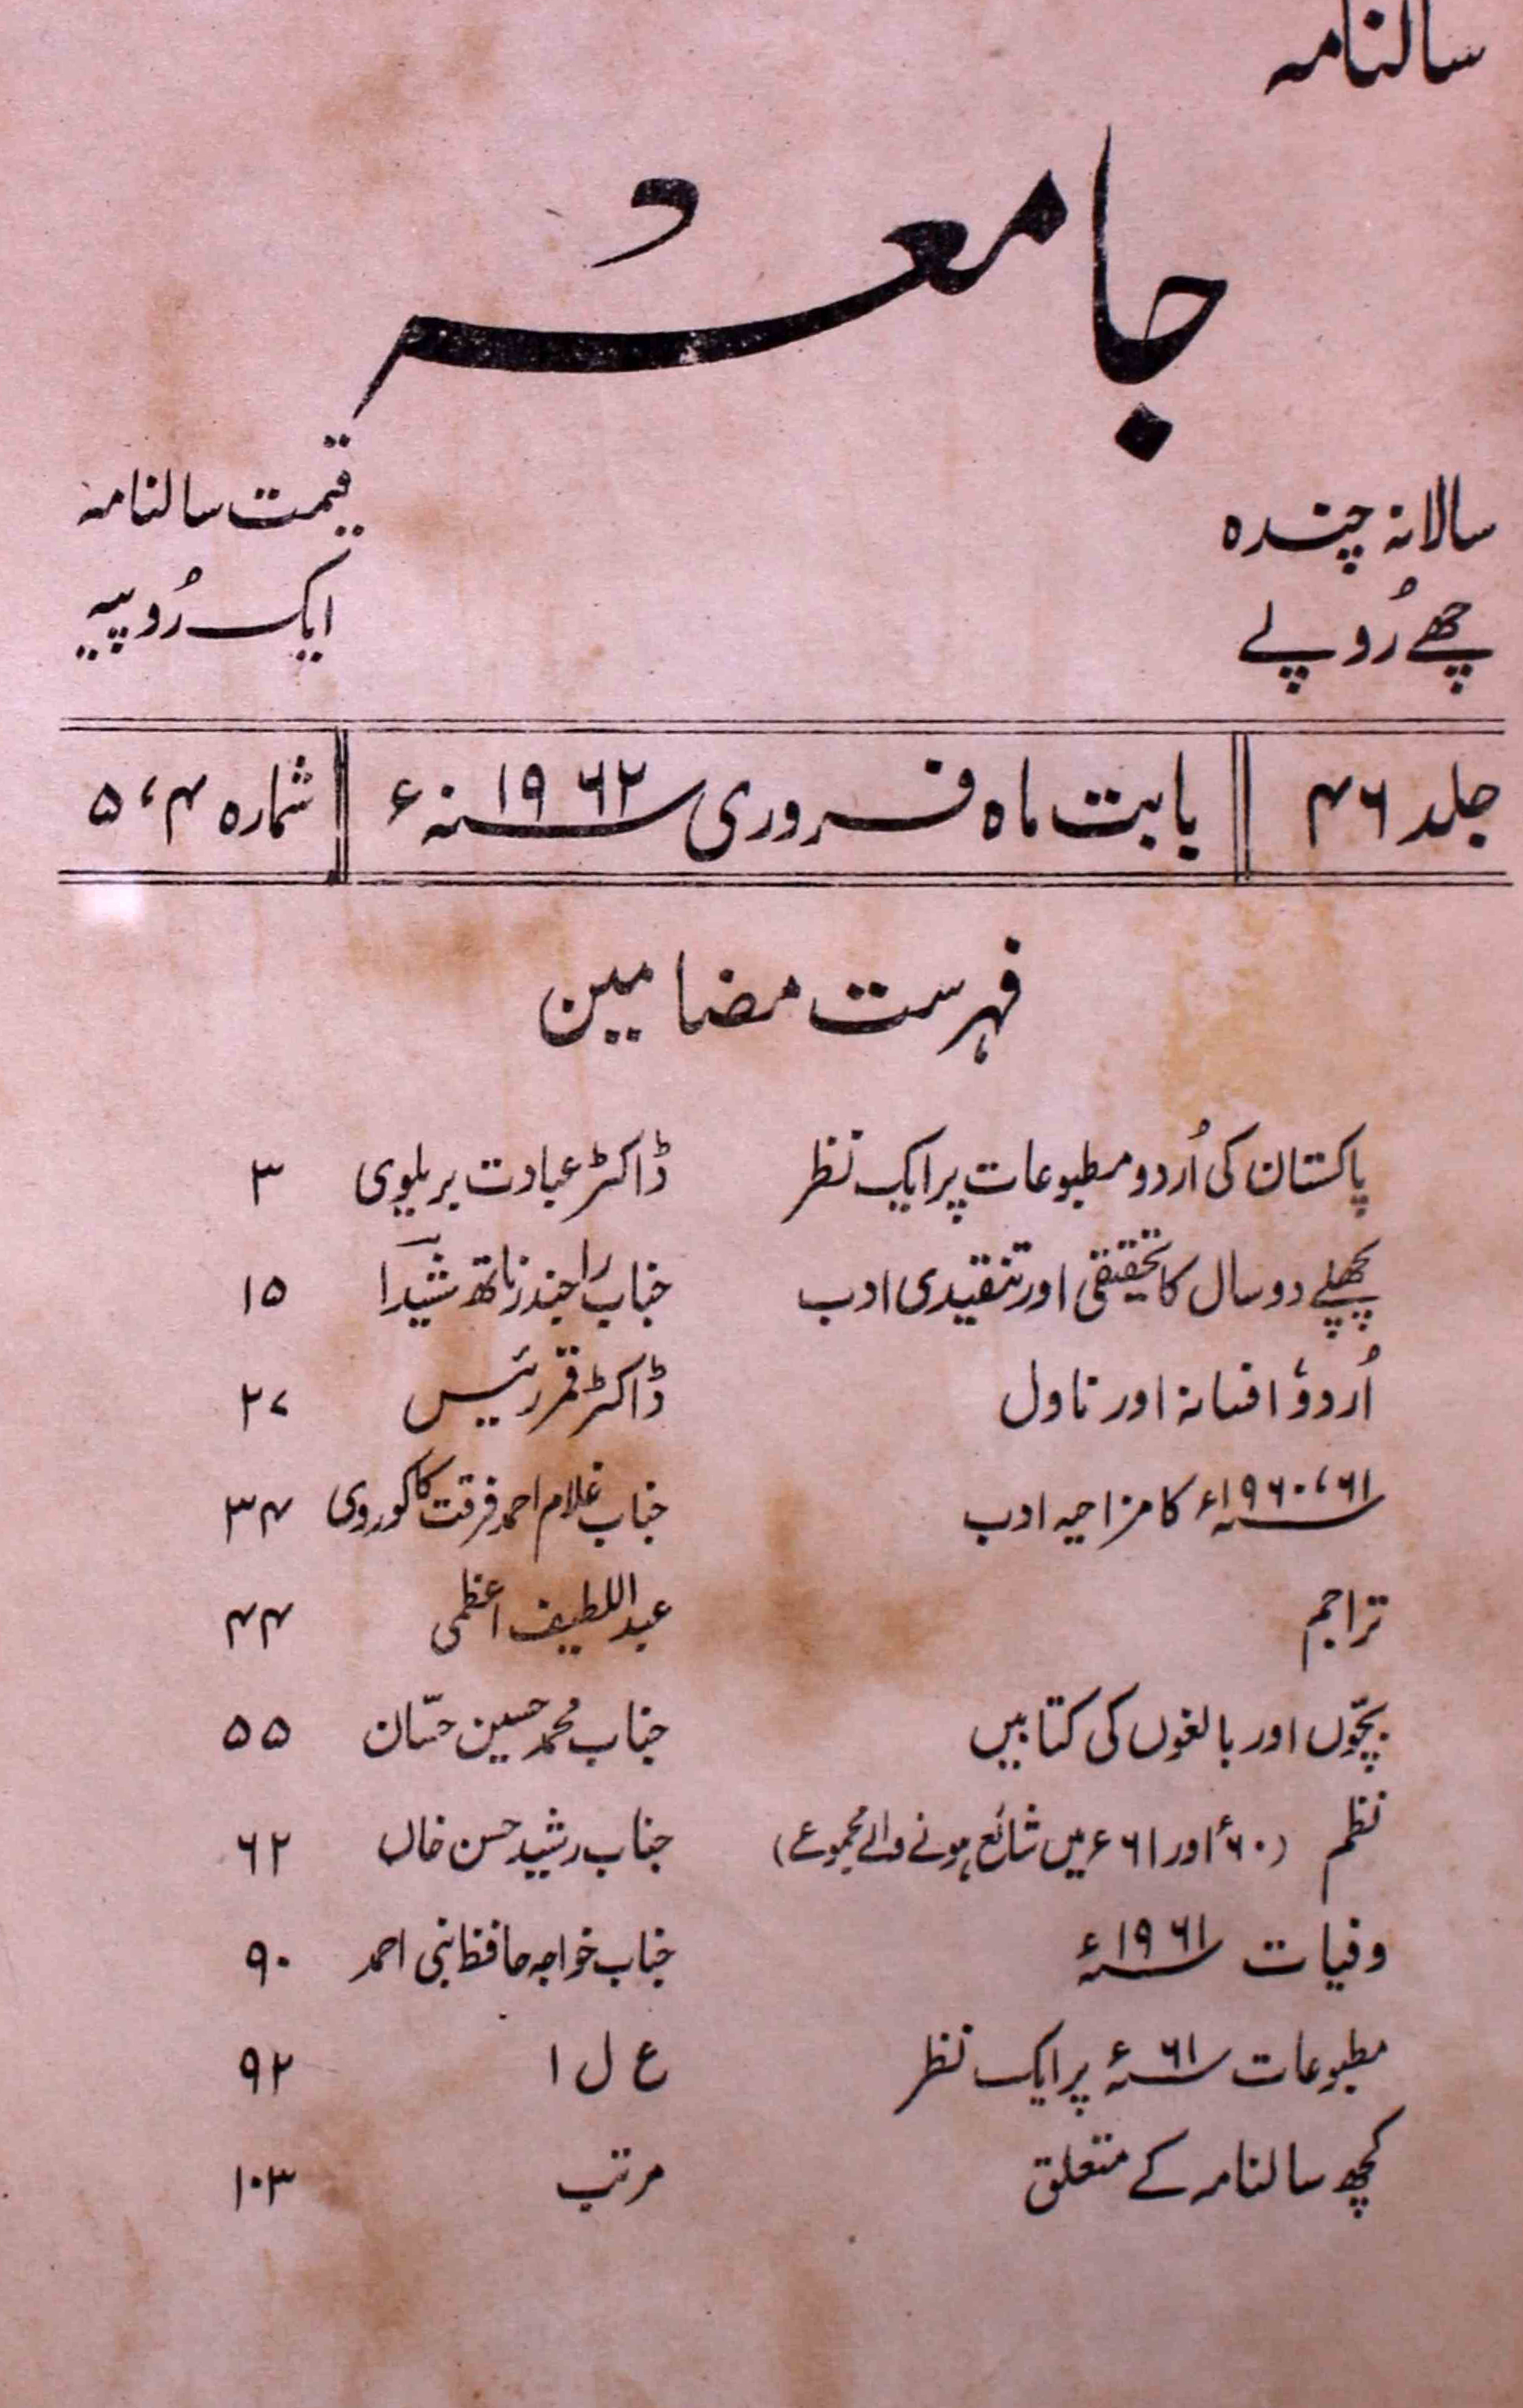 سالنامہ
جامعہ
سالانہ چندہ
چھے رُوپے
قیمت سالنامہ
ایک رُوپیہ
جلد ۴۶
بابت ماہ فروری سنہ ۱۹۶۲ء
شمارہ ۴، ۵
فہرست مضامین
پاکستان کی اُردو مطبوعات پر ایک نظر ڈاکٹر عبادت بریلوی ۳
پچھلے دو سال کا تحقیقی اور تنقیدی ادب جناب راجندر ناتھ شیدا ۱۵
اُردو افسانہ اور ناول ڈاکٹر قمر رئیس ۲۷
۱۹۶۰، ۶۱ء کا مزاحیہ ادب جناب غلام احمد فرقت کاکوروی ۳۴
تراجم عبداللطیف اعظمی ۴۴
بچّوں اور بالغوں کی کتابیں جناب محمد حسین حسّان ۵۵
نظم (۶۰ء اور ۶۱ء میں شائع ہونے والے مجموعے) جناب رشید حسن خاں ۶۲
وفیات ۱۹۶۱ء جناب خواجہ حافظ نبی احمد ۹۰
مطبوعات ۶۱ء پر ایک نظر ع ل ا ۹۲
کچھ سالنامہ کے متعلق مرتب ۱۰۳